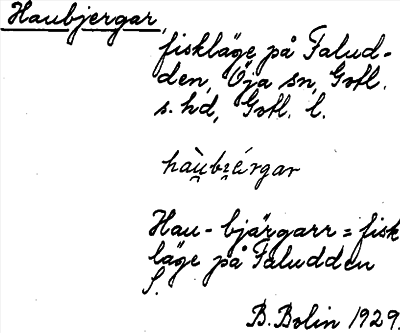 Haubjergar,
fiskläge på Falud-
den, Öja sn, Gotl.
s. hd, Gotl. l.
hàu̯bi̯érgar
Hau-bjärgarr = fisk
läge på Faludden
S.
B. Bolin 1929.